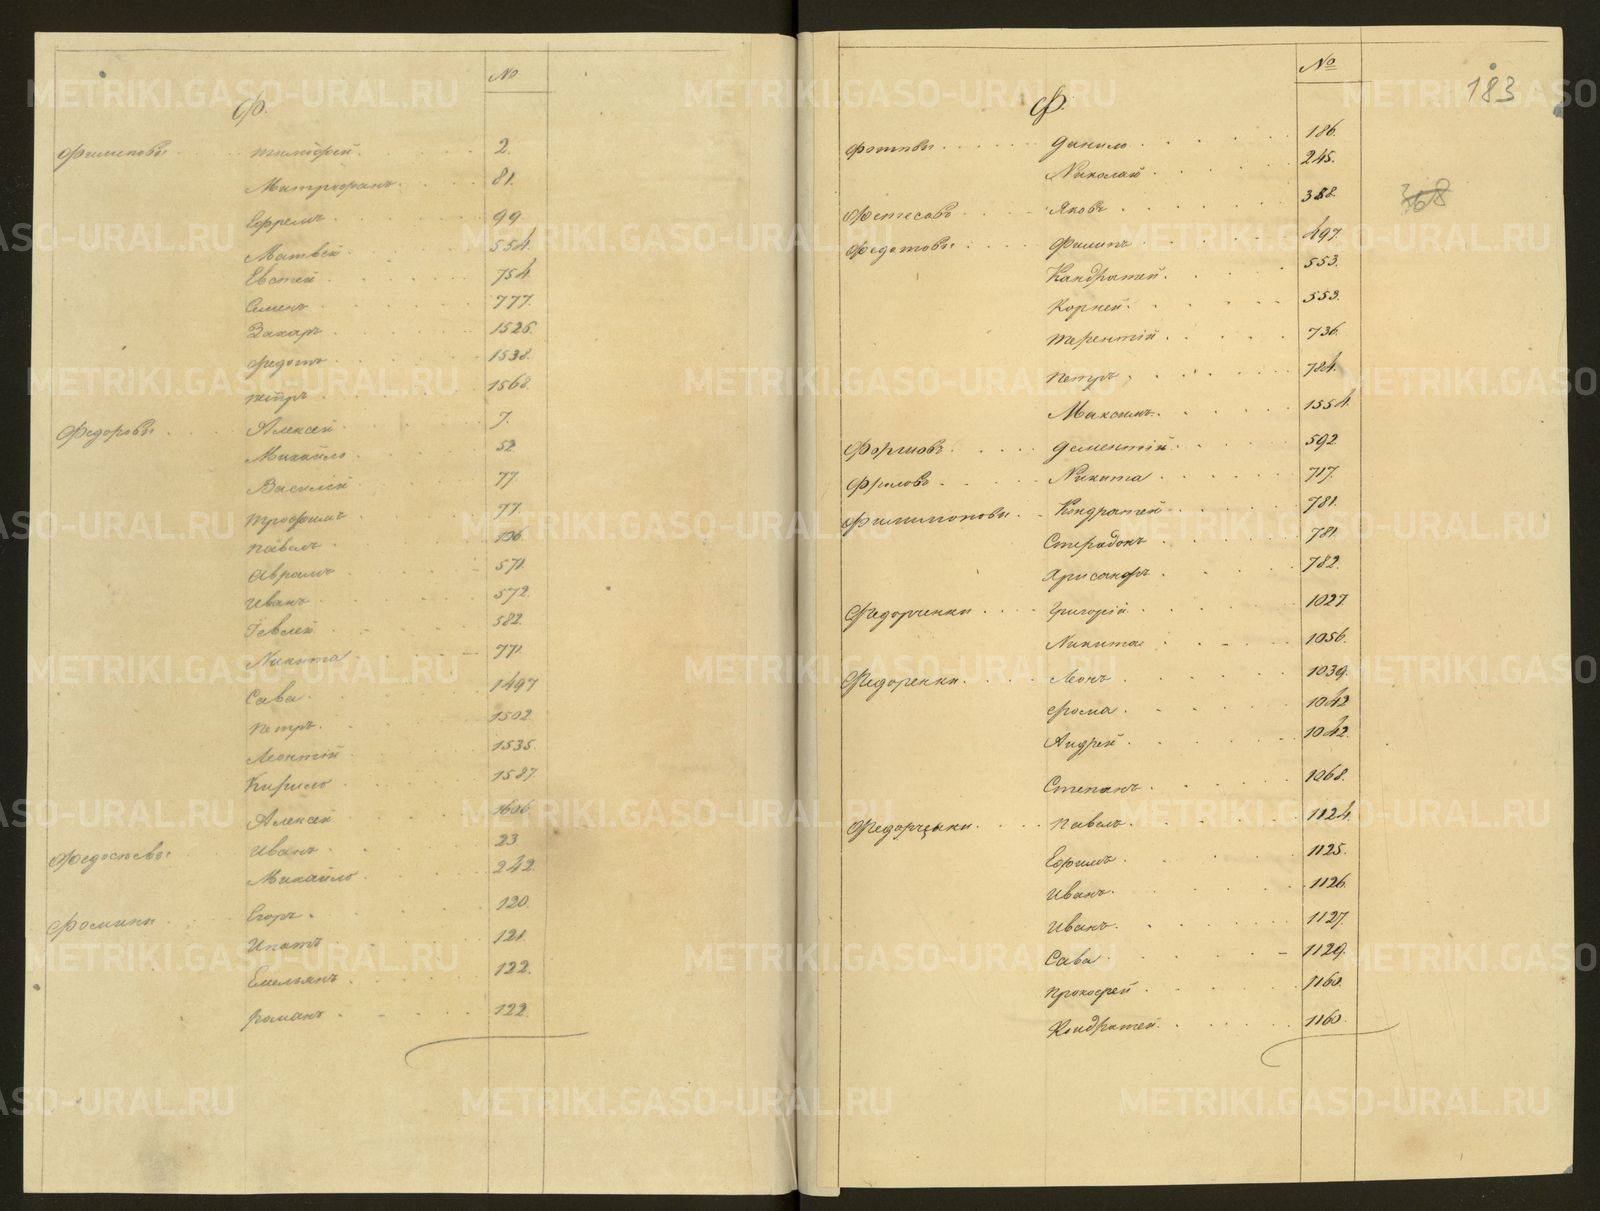 №
Ф.
Филиповы Тимофей. 2.
Митрофанъ. 81.
Ефремъ. 99
Матвей. 554.
Евстей. 754
Семенъ. 777.
Захаръ. 1526.
Федотъ. 1538.
Петръ. 1568.
Федоровы Алексей. 7.
Михайло. 52
Василий 77
Трофимъ 77.
Павелъ 106
Аврамъ 571.
Иванъ 572.
582.
Никита 771
Сава 1497
Петръ. 1502
Леонтий 1535.
Кирило 1587.
Алексей 1606
Федосеевы Иванъ. 23
Михайло. 242.
Фомины Егоръ. 120.
Ипатъ 121.
Емельянъ. 122.
Романъ 122.
№
183
Ф.
Данило 186.
Николай 245.
368
Фетесовъ Яковъ 388.
Федотовы Филипъ 497.
Кандратей. 553.
Корней. 553.
Терентій. 736.
Петръ. 784.
Максимъ. 1554.
Дементій 592.
Фроловъ Никита 717.
Филимоновы Кондратей 781.
Спиридонъ 781.
Хрисанфъ 782.
Федорченки Григорій 1027.
Никита 1056.
Федоренки Леонъ 1039.
Фома 1042
Андрей 1042.
Степанъ 1068.
Федорченки Павелъ 1124.
Ефимъ 1125.
Иванъ. 1126.
Иванъ. 1127.
Сава 1129.
Прокофей 1160.
Кондратей. 1160.
METRIKI.GASO-URAL.RU